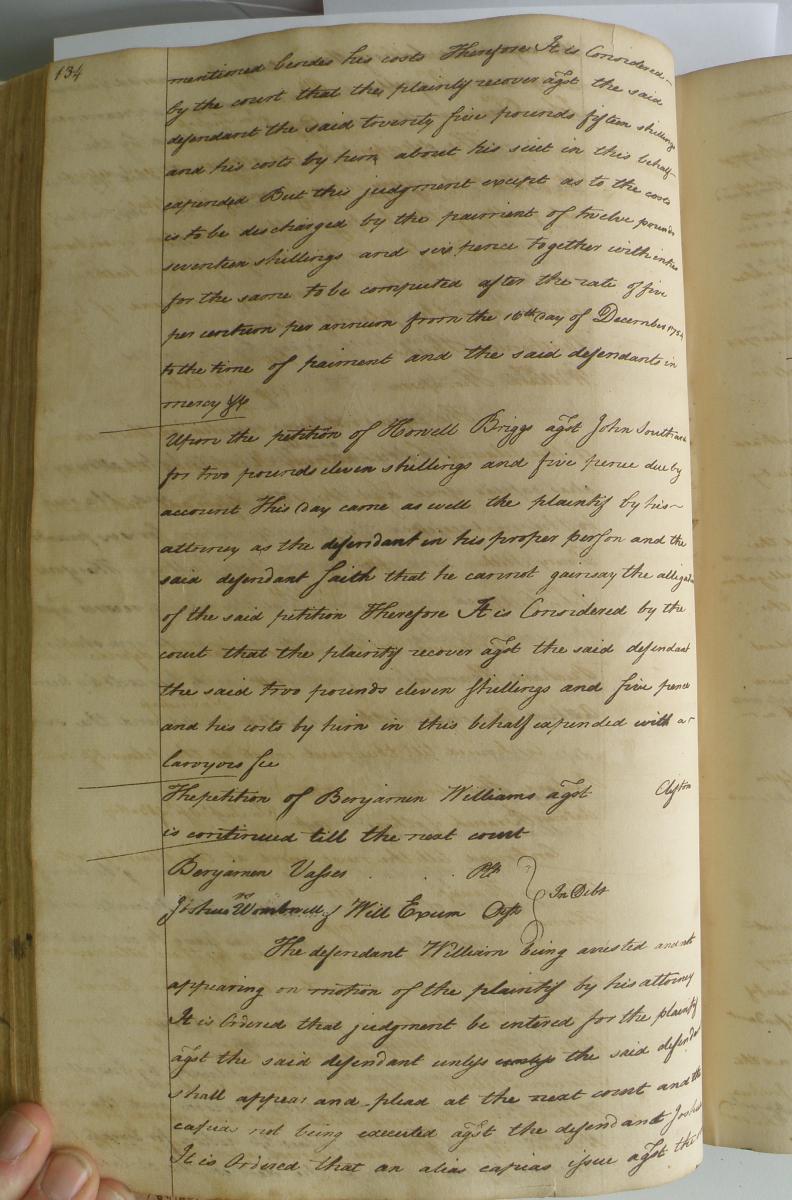 134
mentioned besides his costs Therefore It is Considered
by the court that the plaintif recover agst the said
defendant the said twenty five pounds fifteen shillings
and his costs by him about his suit in this behalf
expended But this judgment except as to the costs
is to be discharged by the paiment of twelve pounds
seventeen shillings and six pence together with
for the same to be computed after the rate of five
per centum per annum from the 16th day of December
to the time of paiment and the said defendants in
mercy &c
Upon the petition of Howell Briggs agst John
for two pounds eleven shillings and five pence due by
account This day came as well the plaintif by his
attorney as the defendant in his proper person and the
said defendant saith that he cannot gainsay the
of the said petition Therefore It is Considered by the
court that the plaintif recover agst the said defendant
the said two pounds eleven shillings and five pence
and his costs by him in this behalf expended with a
lawyers fee
The petition of Benjamen Williams agst
is continued till the next court
Benjamen Vasser Plt
Joshua & Will Exum Defts In Debt
The defendant William being arrested and not
appearing on motion of the plaintif by his attorney
It is Ordered that judgment be entered for the plaintif
agst the said defendant unless unless the said
shall appear and plead at the next court and the
capias not being executed agst the defendant
It is Ordered that an alias capias issue agst